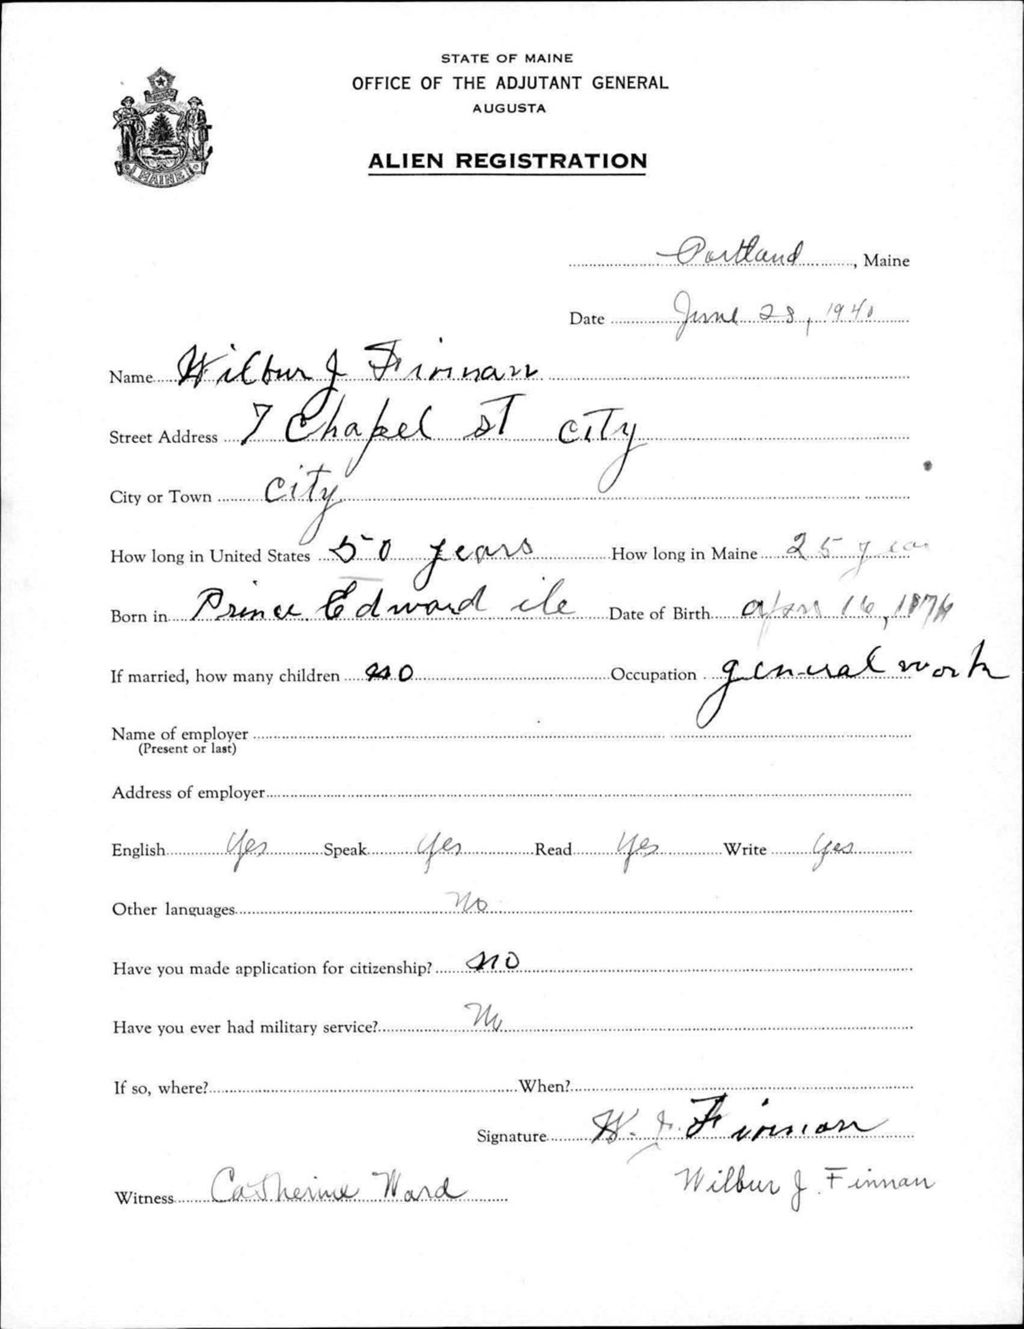 STATE OF MAINE
OFFICE OF THE ADJUTANT GENERAL
AUGUSTA
ALIEN REGISTRATION
MAINE
Portland, Maine
Date June 28, 1940
Name Wilbur J Finnan
Street Address 7 Chapel st city
City or Town city
How long in United States 50 years How long in Maine 25 year
Born in Prince Edward ile Date of Birth 16, 1876
If married, how many children no Occupation general work
Name of employer
(Present or last)
Address of employer
English Yes Speak Yes Read Yes Write Yes
Other languages No
Have you made application for citizenship? no
Have you ever had military service? No
If so, where? When?
Signature W. J. Finnan
Witness Catherine Ward Wilbur J. Finnan